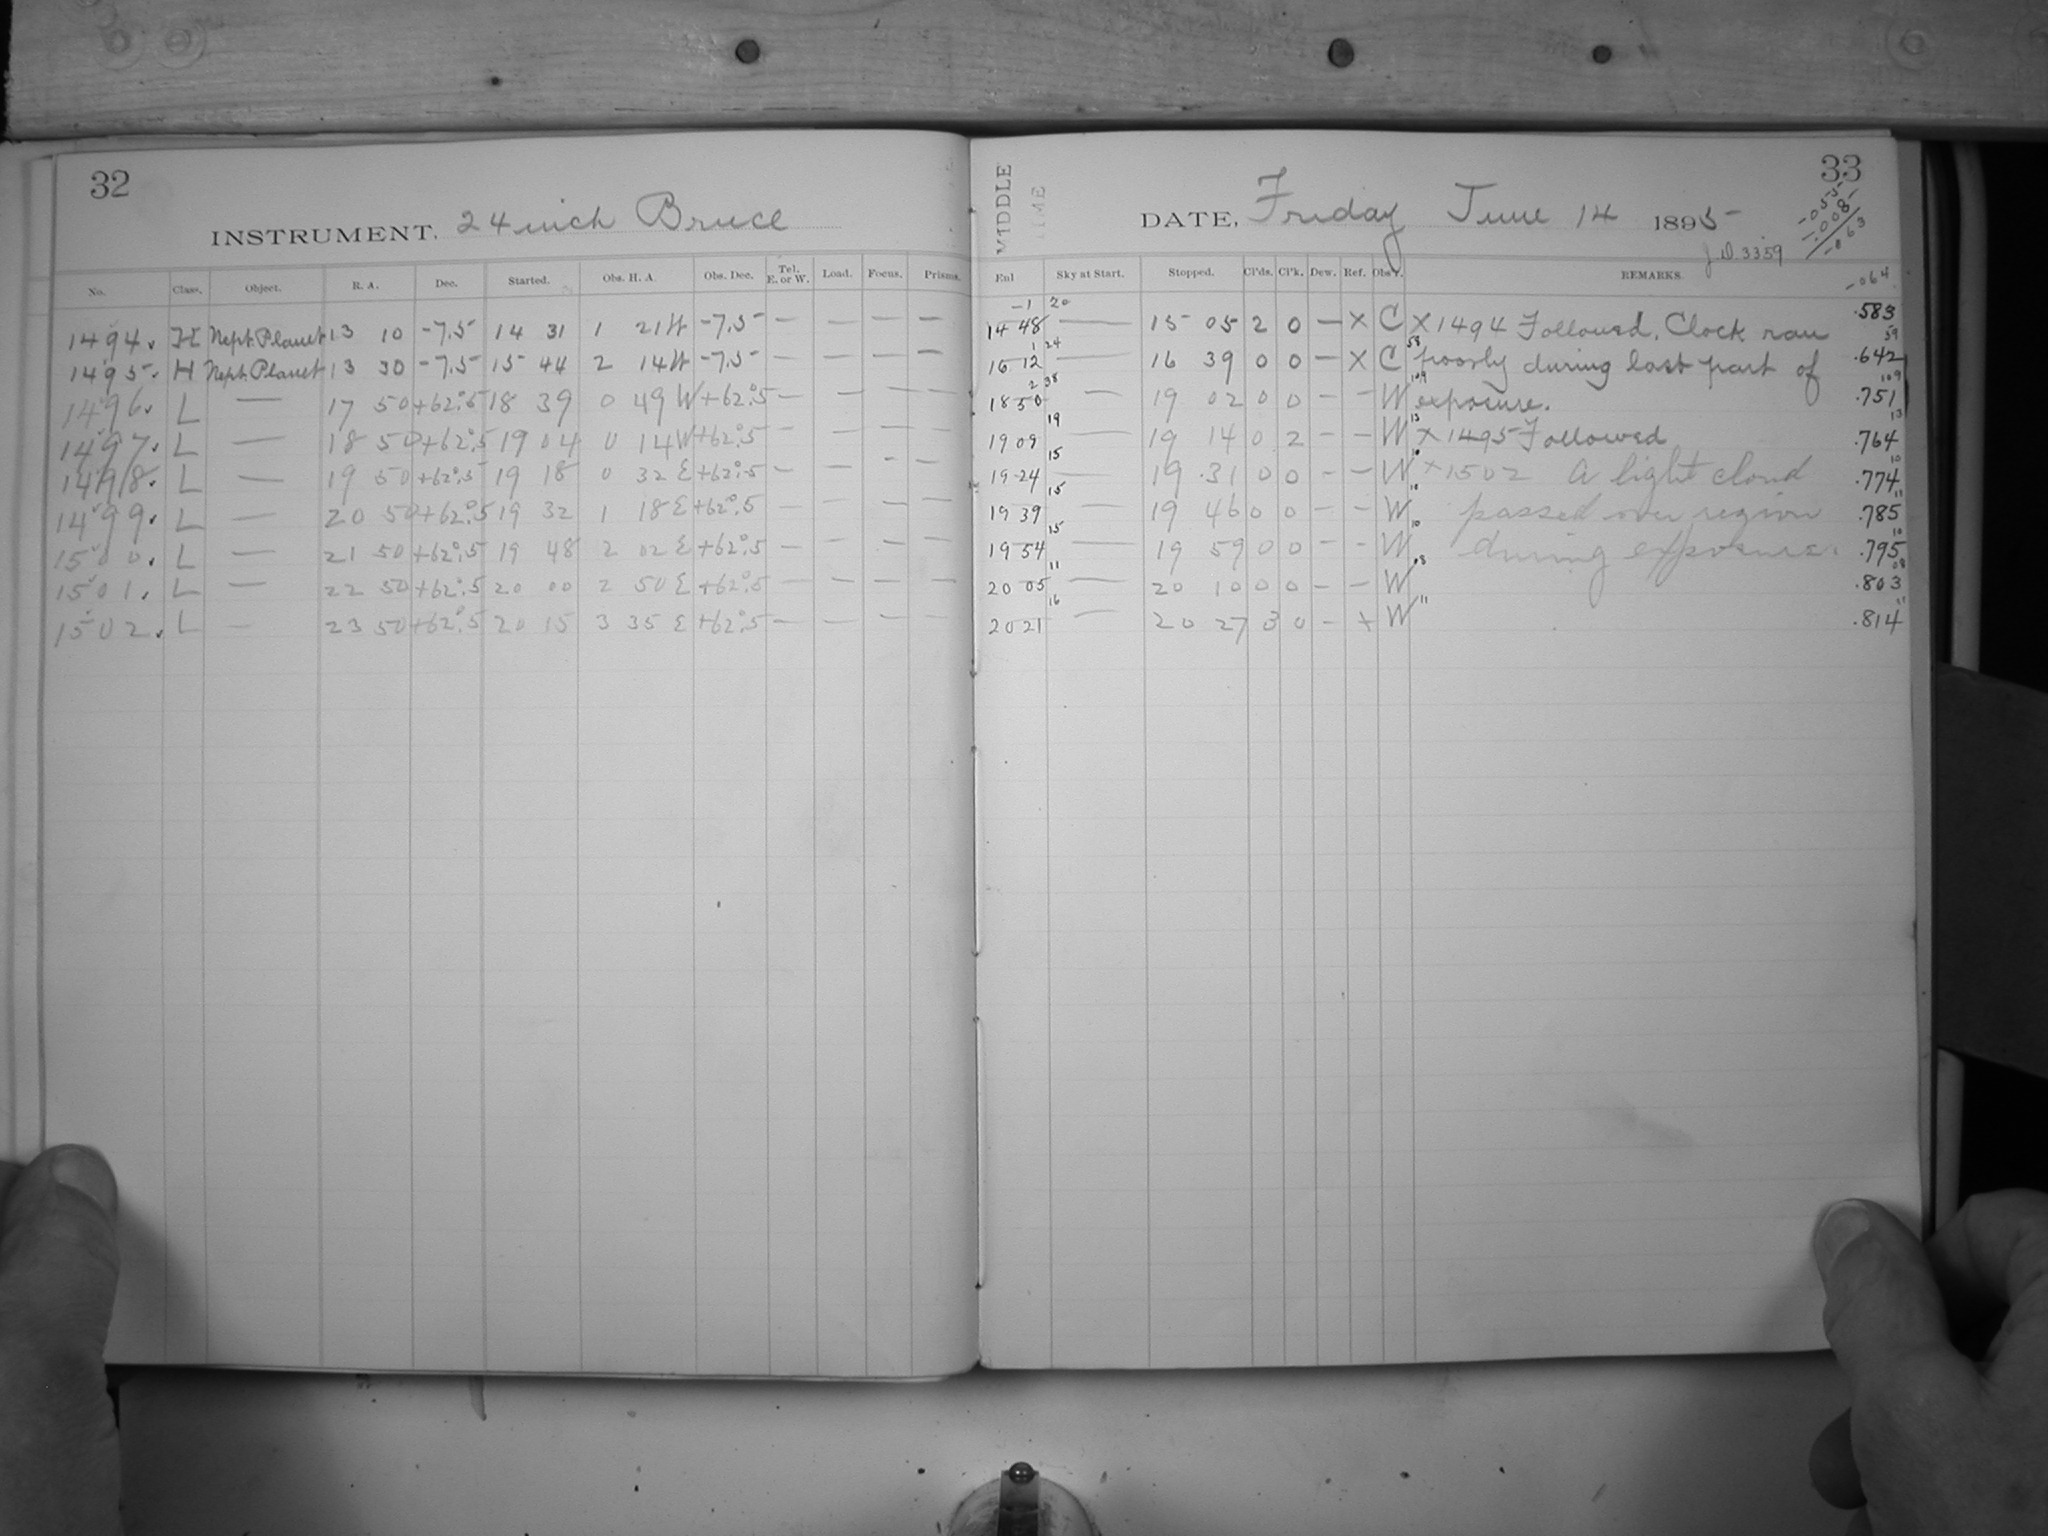 32
INSTRUMENT. 24 inch Bruce
No. Class. Object. R. A. Dec. Started. Obs. H. A. Obs. Dec. Tel. E. or W. Load. Focus. Prisms.
1494. H Nept. Planet 13 10 -7.5 14 31 1 21 W -7.5 — — — —
1495. H Nept. Planet 13 30 -7.5 15 44 2 14 W -7.5 — — — —
1496. L — 17 50 +62°.5 18 39 0 49 W +62°.5 — — — —
1497. L — 18 50 +62°.5 19 04 0 14 W +62°.5 — — — —
1498. L — 19 50 +62°.5 19 18 0 32 E +62°.5 — — — —
1499. L — 20 50 +62°.5 19 32 1 18 E +62°.5 — — — —
1500. L — 21 50 +62°.5 19 48 2 02 E +62°.5 — — — —
1501. L — 22 50 +62°.5 20 00 2 50 E +62°.5 — — — —
1502. L — 23 50 +62°.5 20 15 3 35 E +62°.5 — — — —
33
MIDDLE
TIME
DATE, Friday June 14 1895
-.055
-.008
-.063
J.D. 3359
Sky at Start. Stopped. Cl'ds. Cl'k. Dew. Ref. Obs'r. REMARKS.
-.064
-1 20
14 48 — 15 05 2 0 — X C X 1494 Followed. Clock ran .583
1 24 59
16 12 — 16 39 0 0 — X C 58 poorly during last part of .642
2 38 109
18 50 — 19 02 0 0 — — W 109 exposure. .751
19 13
19 09 — 19 14 0 2 — — W 13 X 1495 Followed .764
15 10
19 24 — 19 31 0 0 — — W 10 X 1502 A light cloud .774
15 11
19 39 — 19 46 0 0 — — W passed over region .785
15 10
19 54 — 19 59 0 0 — — W 10 during exposure. .795
11 08
20 05 — 20 10 0 0 — — W 08 .803
16 11
20 21 — 20 27 3 0 — X W 11 .814